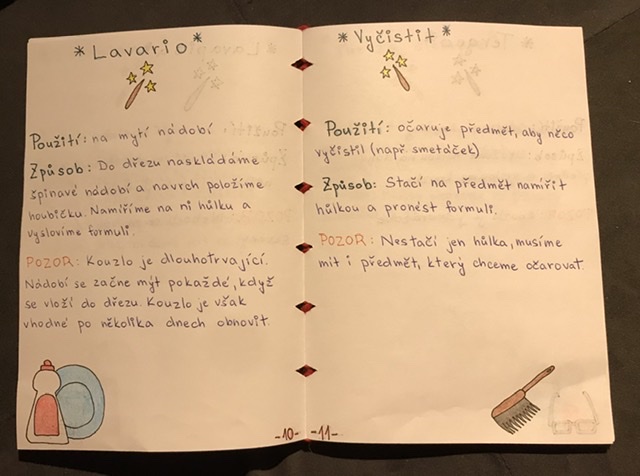 *Lavario*
Použití: na mytí nádobí
Způsob: Do dřezu naskládáme
špinavé nádobí a navrch položíme
houbičku. Namíříme na ni hůlku a
vyslovíme formuli.
POZOR: Kouzlo je dlouhotrvající.
Nádobí se začne mýt pokaždé, když
se vloží do dřezu. Kouzlo je však
vhodné po několika dnech obnovit.
-10-
*Vyčistit*
Použití: očaruje předmět, aby něco
vyčistil (např smetáček)
Způsob: Stačí na předmět namířit
hůlkou a pronést formuli.
POZOR: Nestačí jen hůlka, musíme
mít i předmět, který chceme očarovat.
-11-